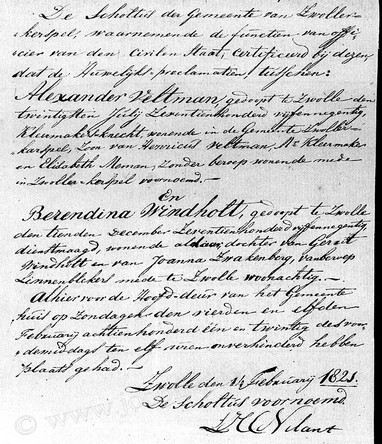 De Scholtus der Gemeente van Zwoller-
kerspel, waarnemende de functien van offi-
cier van den Civilen Staat, Certificeerd bij dezen,
dat de Huwelijks-proclamatien tusschen:
Alexander Veltman, gedoopt te Zwolle den
twintigsten Julij Zeventienhonderd vijfennegentig,
Kleermakersknecht, wonende in de Gemeente Zwoller-
karspel, Zoon van Henricus Veltman, Kleermaker
en Elisabeth Meman, zonder beroep wonende mede
in Zwoller-kerspel voornoemd.—
En
Berendina Windholt, gedoopt te Zwolle
den tienden December Zeventienhonderd vijfennegentig,
dienstmaagd, wonende aldaar, dochter van Gerrit
Windholt en van Joanna Zwakenberg, van beroep
Linnenblekers mede te Zwolle woonachtig.—
Alhier voor de Hoofd-deur van het Gemeente
huis op Zondagen den vierden en elfden
Februarij achttienhonderd één en twintig des voor-
demiddags ten elf uren onverhinderd hebben
plaats gehad.—
Zwolle den 14 Februarij 1821.
De Scholtus voornoemd.
Nilant